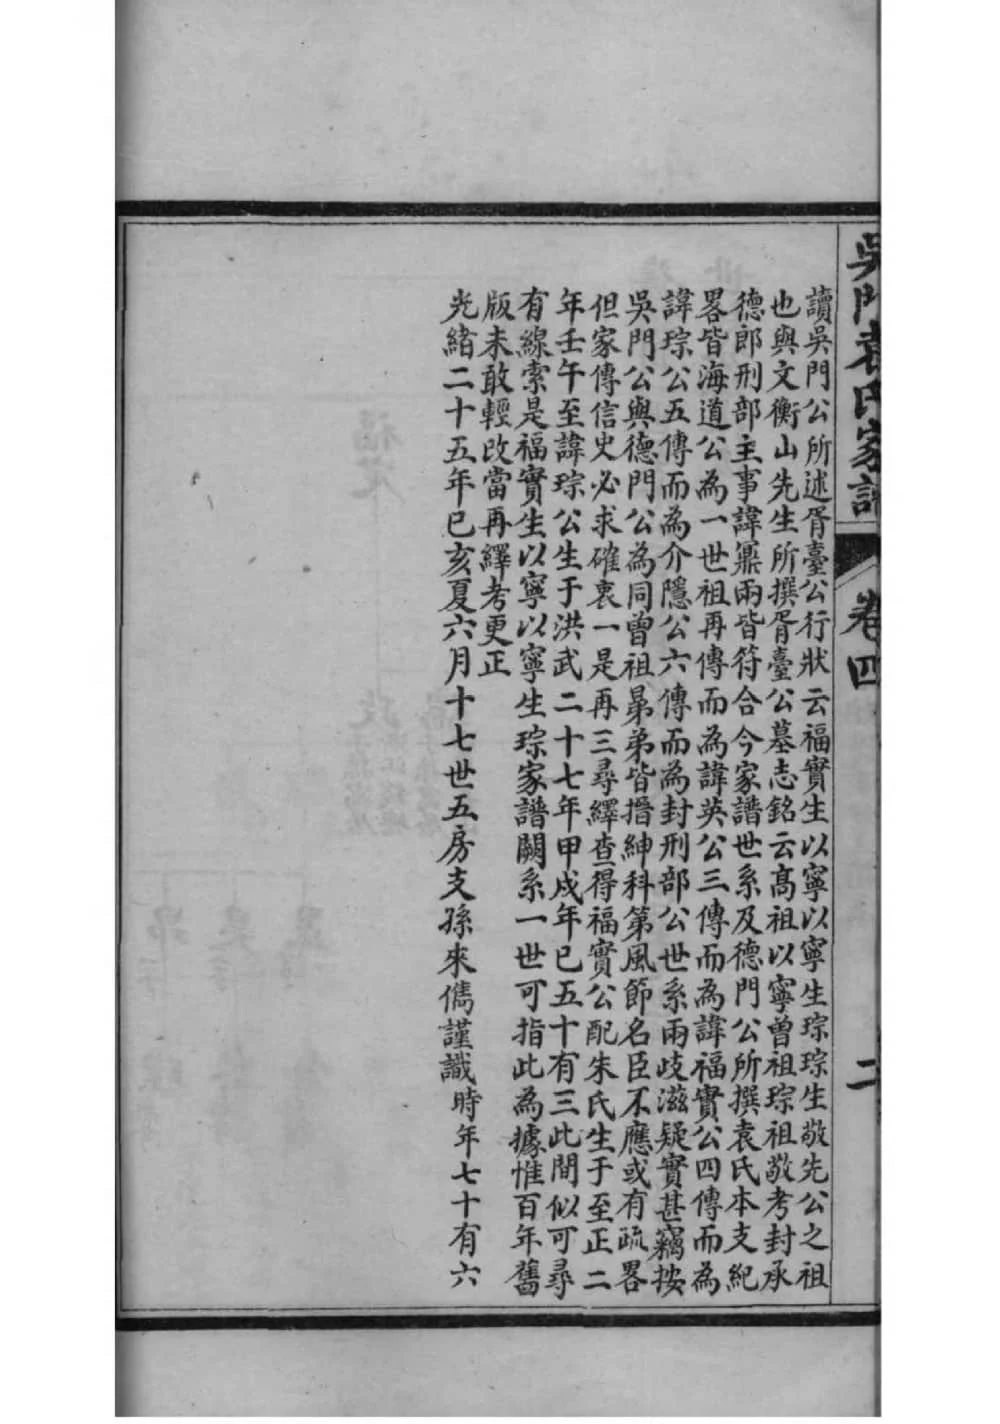 吳門袁氏家譜 卷四 二
讀吳門公所述胥臺公行狀云福實生以寧以寧生琮琮生敬先公之祖
也與文衡山先生所撰胥臺公墓志銘云高祖以寧曾祖琮祖敬考封承
德郎刑部主事諱鼏兩皆符合今家譜世系及德門公所撰袁氏本支紀
畧皆海道公為一世祖再傳而為諱英公三傳而為諱福實公四傳而為
諱琮公五傳而為介隱公六傳而為封刑部公世系兩歧滋疑實甚竊按
吳門公與德門公為同曾祖晜弟皆搢紳科第風節名臣不應或有疏畧
但家傳信史必求確衷一是再三尋繹查得福實公配朱氏生于至正二
年壬午至諱琮公生于洪武二十七年甲戌年已五十有三此間似可尋
有線索是福實生以寧以寧生琮家譜闕系一世可指此為據惟百年舊
版未敢輕改當再繹考更正
光緒二十五年己亥夏六月十七世五房支孫來儁謹識時年七十有六